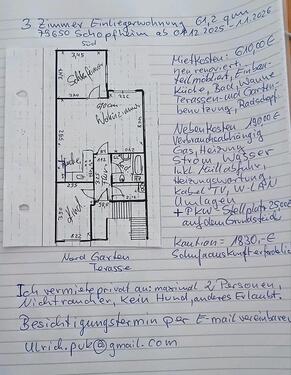 3 Zimmer Einliegerwohnung 61,2 qum
79650 Schopfheim ab 01.12.2025 - 11.2026
Süd
3,45
Schlafzimmer
Wohnzimmer
Küche
Bad
Flur
Nord Garten
Terasse
Mietkosten: 610,00 €
neu renoviert,
teilmöbliert, Einbau-
Küche, Bad, Wanne
Terassen- und Garten-
benutzung, Radstellpl.
Nebenkosten 190,00 €
Verbrauchsabhängig
Gas, Heizung,
Strom Wasser
Inkl. Müllabfuhr,
Heizungswartung,
Kabel TV, W-LAN
Umlagen
+ PKW-Stellplatz 25,00 €
auf dem Grundstück
Kaution = 1830,- €
Schufaauskunft erforderlich
Ich vermiete privat an: maximal 2 Personen,
Nichtraucher, kein Hund, anderes Erlaubt.
Besichtigungstermin per E-mail vereinbaren,
Ulrich.puk@gmail.com